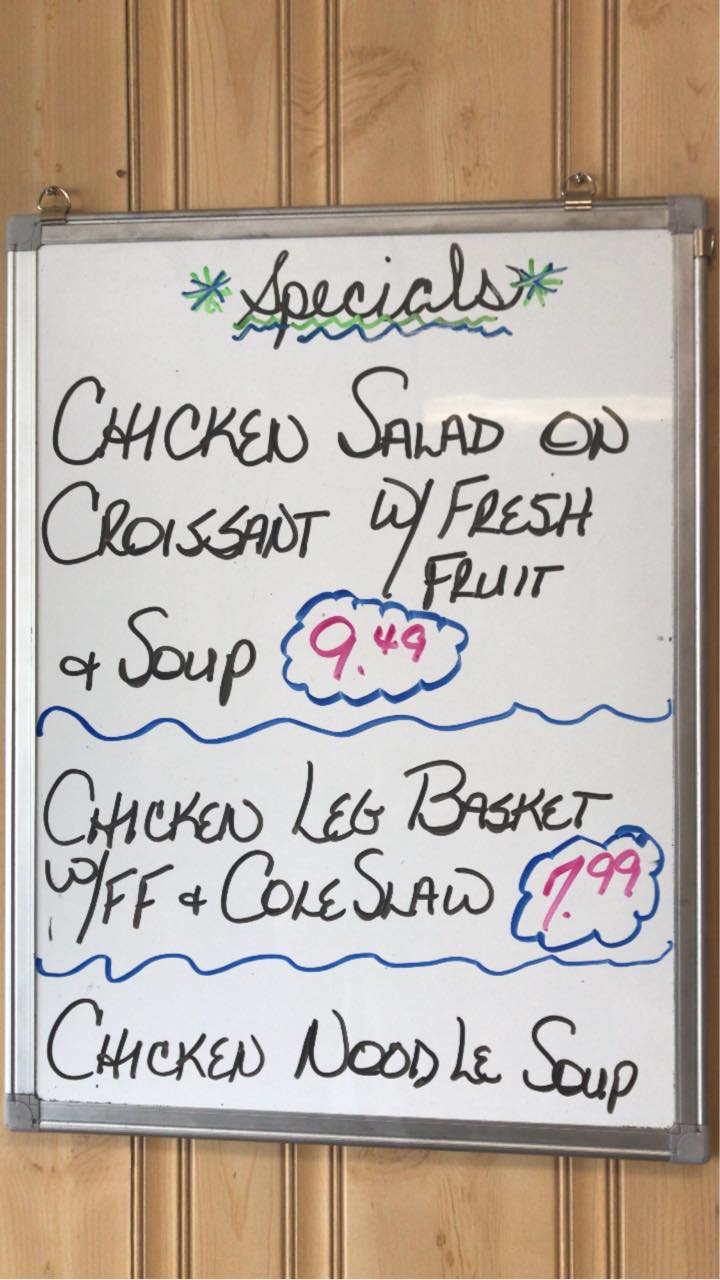 *Specials*
CHICKEN SALAD ON
CROISSANT W/ FRESH
FRUIT
& SOUP 9.49
CHICKEN LEG BASKET
W/FF & COLESLAW 7.99
CHICKEN NOODLE SOUP